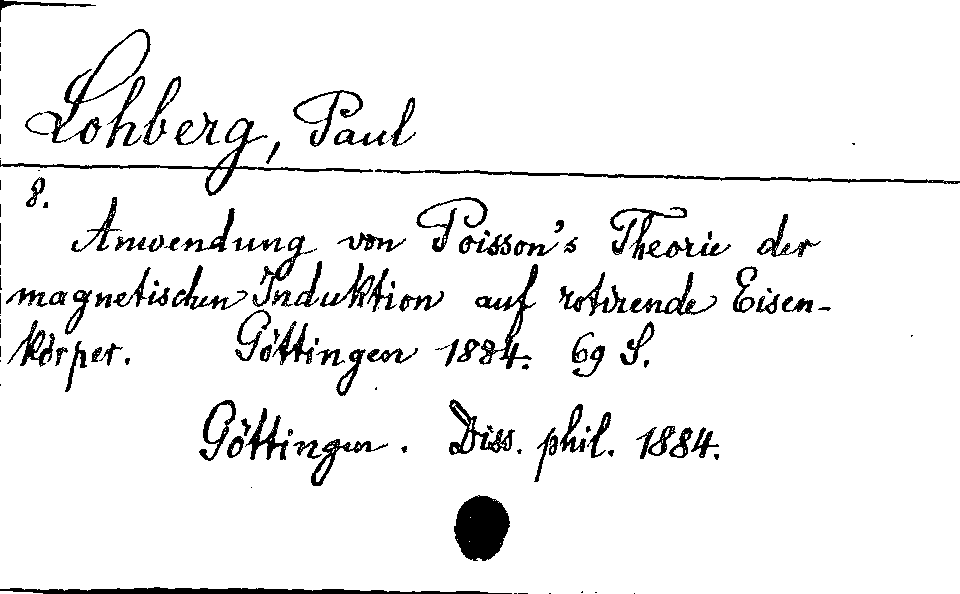 Lohberg, Paul
8.
Anwendung von Poisson's Theorie der
magnetischen Induktion auf rotirende Eisen-
körper. Göttingen 1884. 69 S.
Göttingen. Diss. phil. 1884.